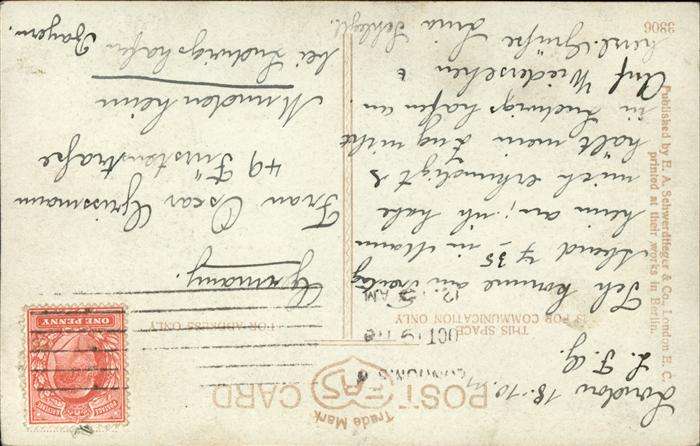 POST CARD
Trade Mark
FAS
THIS SPACE
IS FOR COMMUNICATION ONLY
FOR ADDRESS ONLY
LONDON
OCT 19
12. AM
POSTAGE
ONE PENNY
London 18.10.
Ich komme am Freitag
Abend 7 35 in Mann
heim an; ich habe
mich erkundigt &
hält mein Zug nicht
in Ludwigshafen an.
Auf Wiedersehen &
herzl. Grüße Lina Schlegel.
Germany.
Frau Oscar Grussmann
49 Fürstenstraße
Mundenheim
bei Ludwigshafen
Bayern.
Published by F. A. Schwerdtfeger & Co., London E. C.
printed at their works in Berlin.
2306